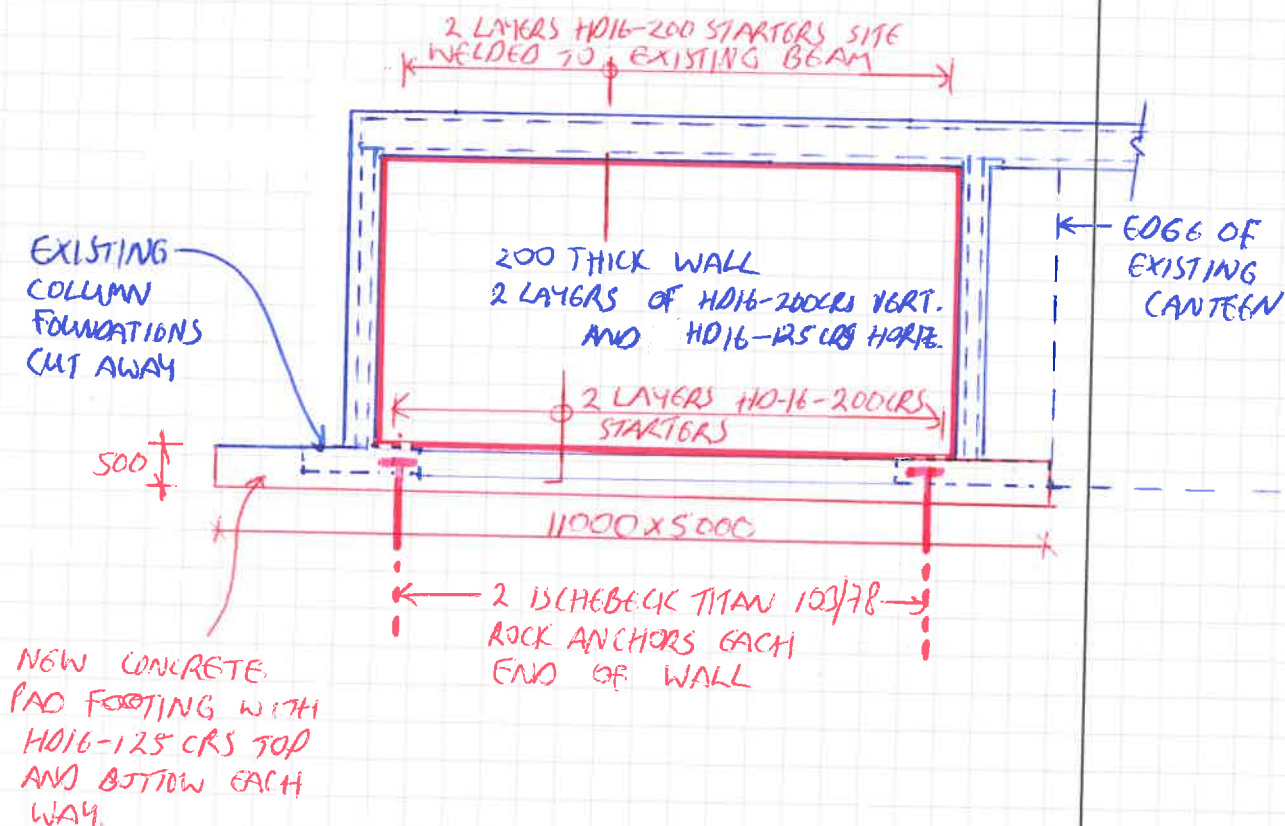 2 LAYERS HD16-200 STARTERS SITE
WELDED TO EXISTING BEAM
EXISTING
COLUMN
FOUNDATIONS
CUT AWAY
200 THICK WALL
2 LAYERS OF HD16-200CRS VERT.
AND HD16-125 CRS HORIZ.
EDGE OF
EXISTING
CANTEEN
2 LAYERS HD-16-200CRS
STARTERS
500
11000 X 5000
2 ISCHEBECK TITAN 103/78
ROCK ANCHORS EACH
END OF WALL
NEW CONCRETE
PAD FOOTING WITH
HD16-125 CRS TOP
AND BOTTOM EACH
WAY.